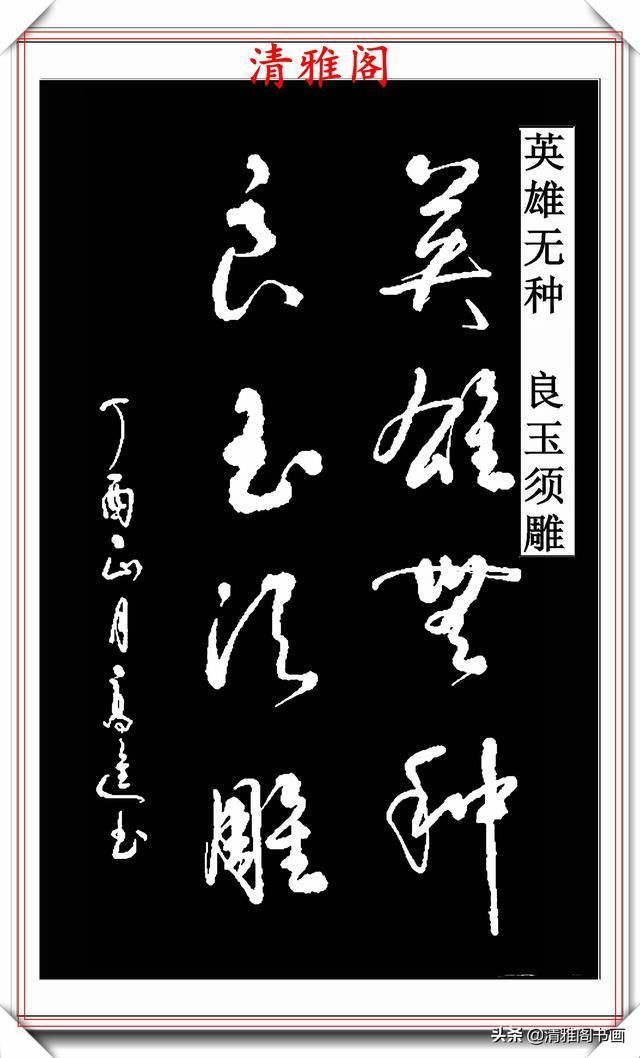 清雅阁
英雄无种 良玉须雕
英雄無种
良玉须雕
丁酉正月高逵书
头条@清雅阁书画